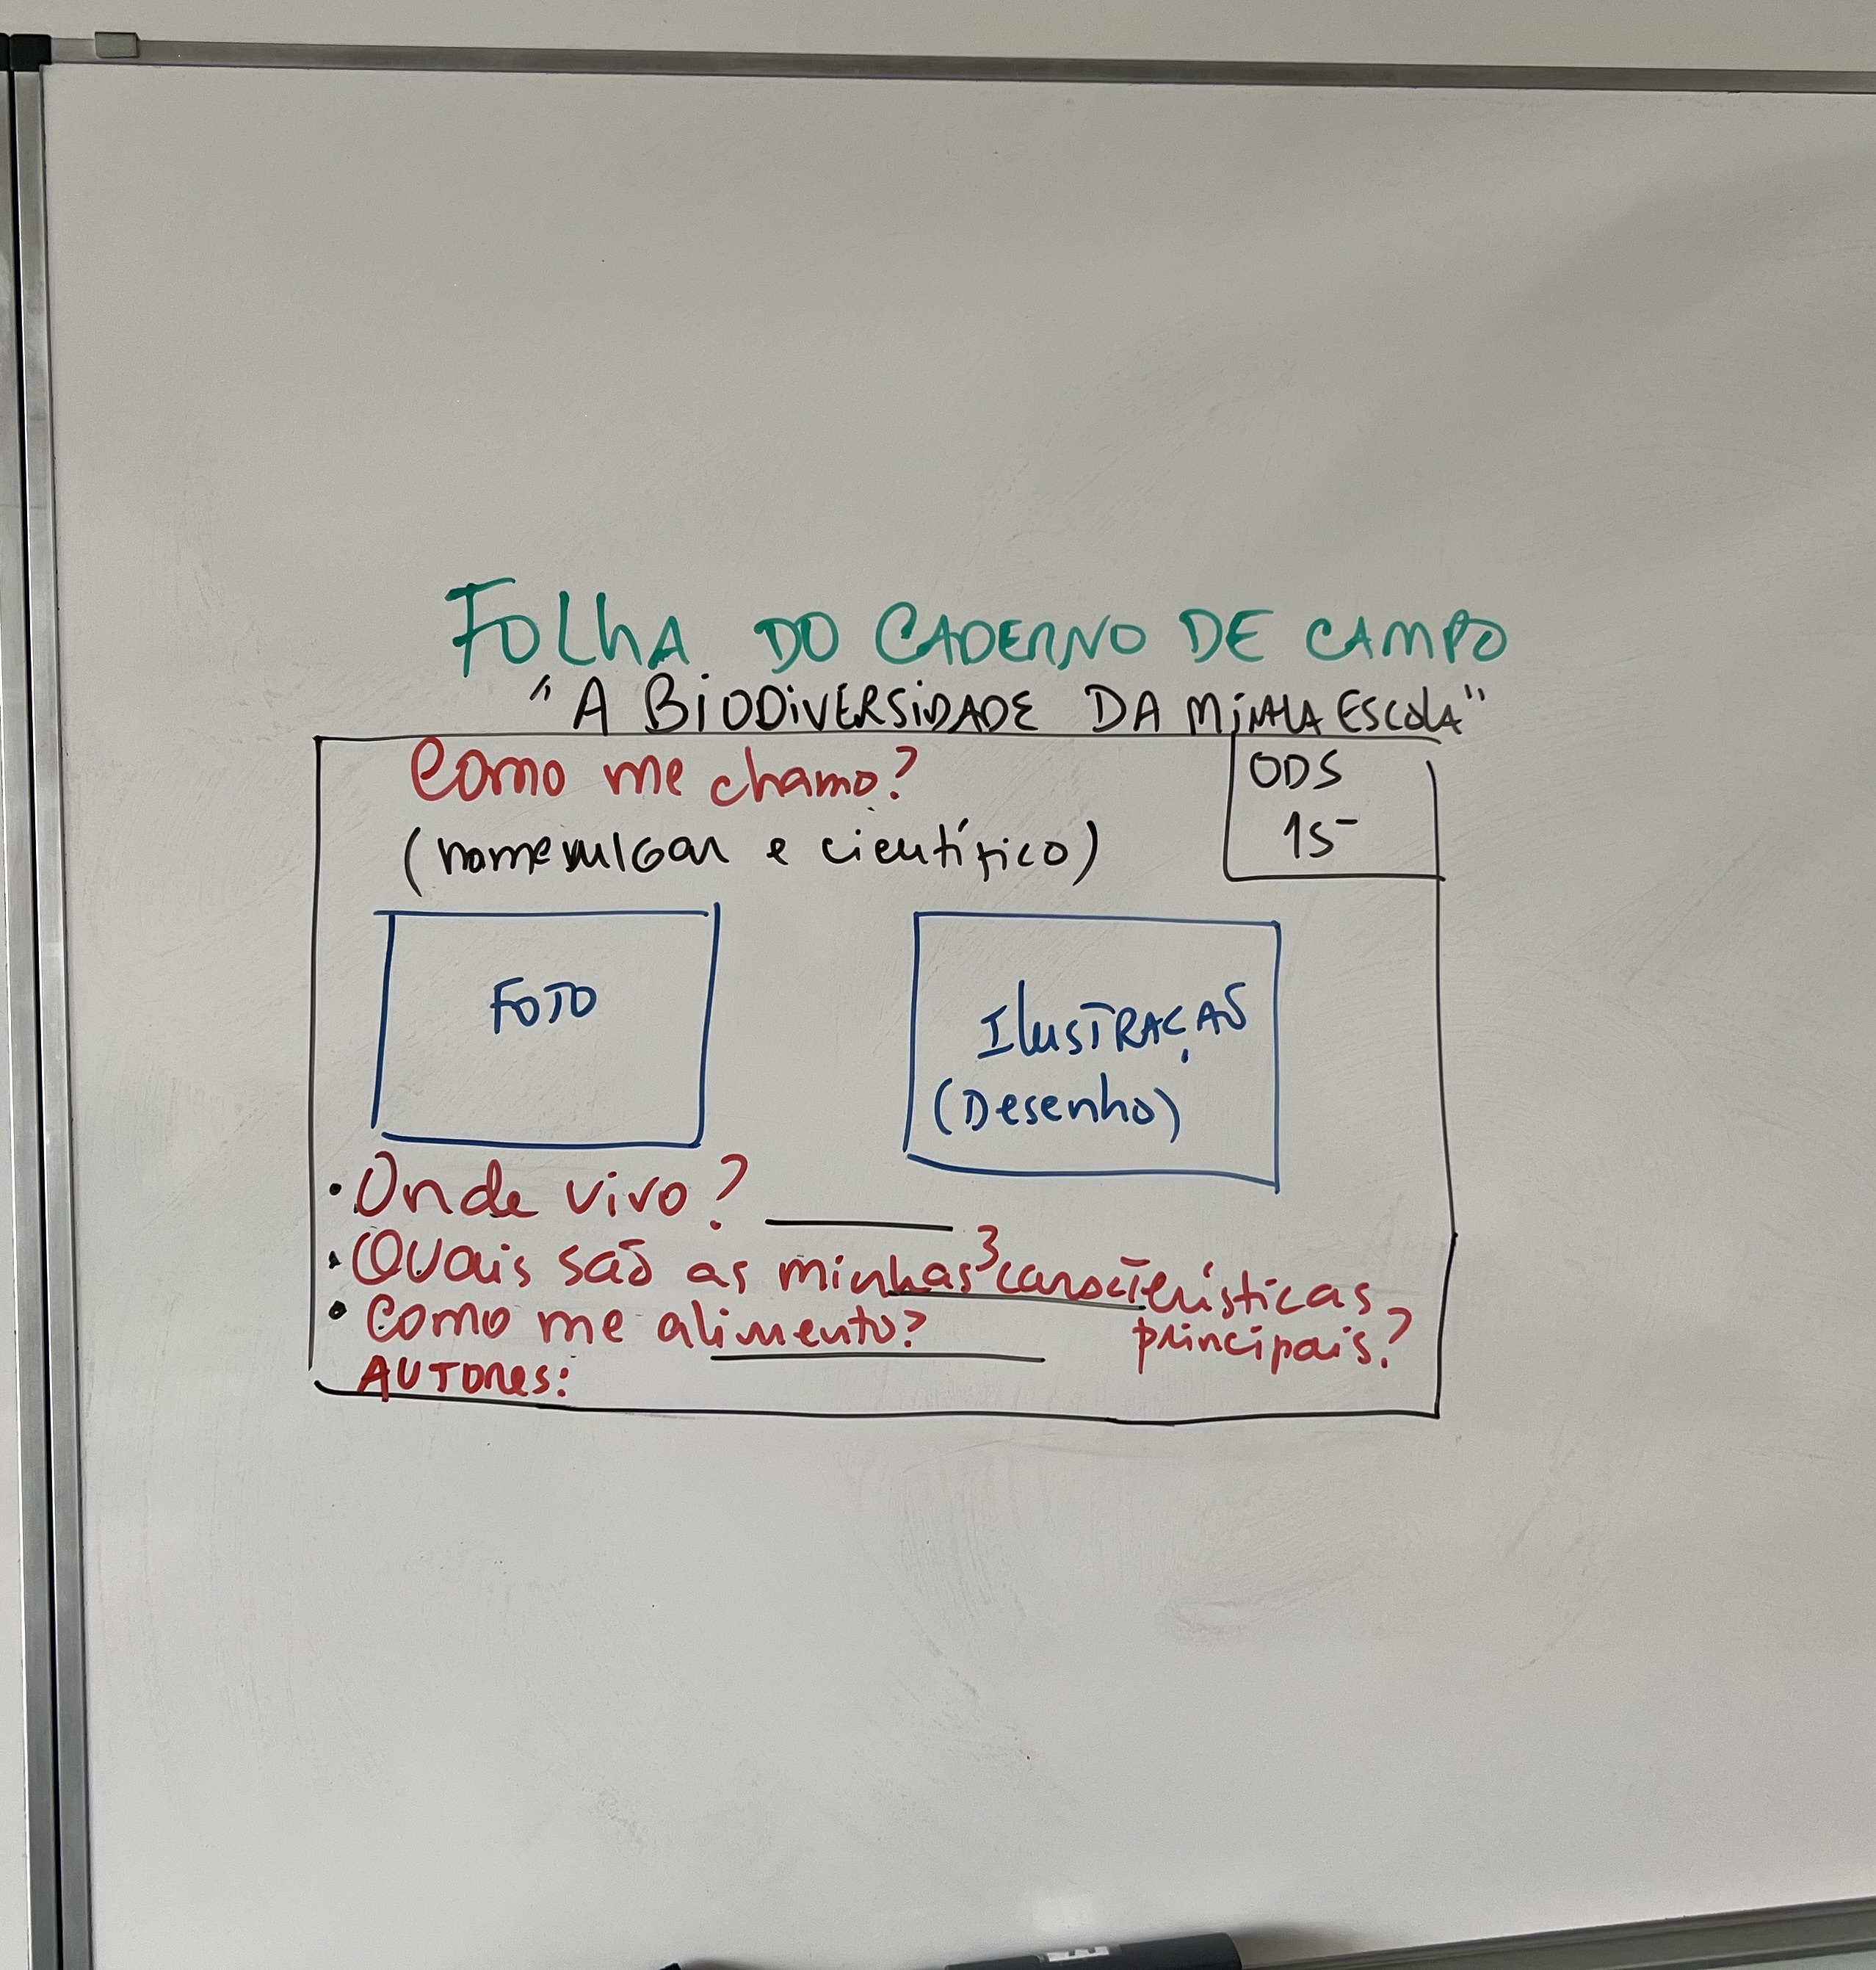 FOLhA DO CADERNO DE CAMPO
"A BiODiVERSiDADE DA MiNhA ESCOlA"
Como me chamo?
ODS
15
(nome vulgar e científico)
FOTO
IlusTRAÇÃO
(Desenho)
• Onde vivo? ______
• Quais são as minhas 3 características
principais?
• Como me alimento?
AUTORes: